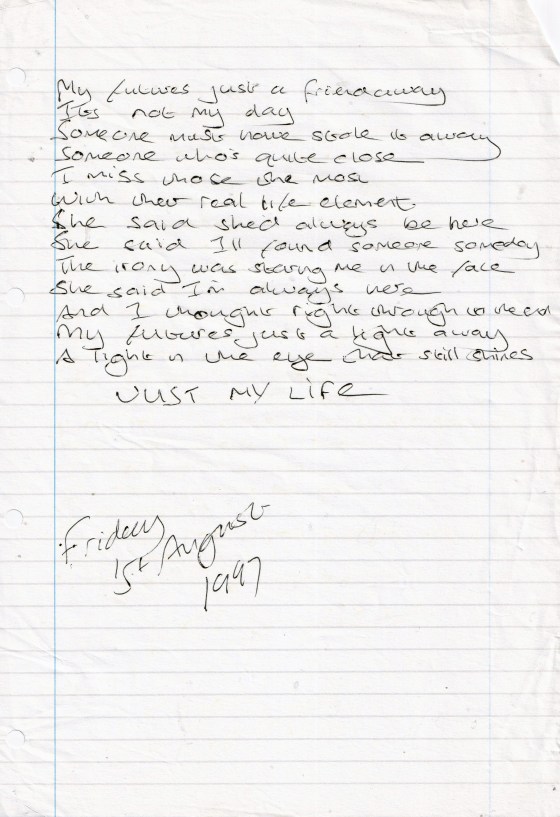 My futures just a friend away
Its not my day
Someone must have stole it away
Someone who's quite close
I miss those the most
With their real life element.
She said shed always be here
She said I'll found someone someday
The irony was staring me n the face
She said I'm always here
And I thought right through
My futures just a light away
A light n the eye that still shines
JUST MY LIFE
Friday
1st August
1997